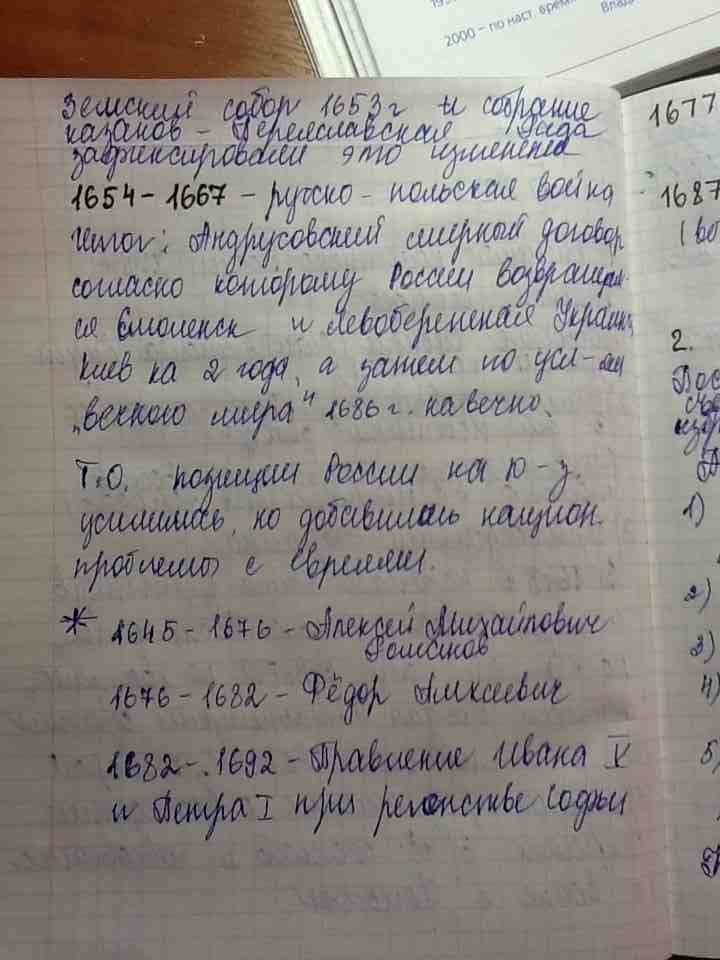 195
2000 – по наст. время
Влад
Земский собор 1653 г и собрание
казаков – Переяславская Рада
зафиксировали это изменения
1654 – 1667 – русско - польская война
Итог: Андрусовский мирный договор
согласно которому России возвращал-
ся Смоленск и левобережная Украина,
Киев на 2 года, а затем по усл-ям
„вечного мира" 1686 г. навечно.
Т.О. позиции России на Ю-З.
усилились, но добавились национ.
проблемы с евреями.
* 1645 – 1676 – Алексей Михайлович
Романов
1676 – 1682 – Фёдор Алексеевич
1682 – 1692 – Правление Ивана V
и Петра I при регенстве Софьи
1677
1687
2.
1)
2)
3)
4)
5)